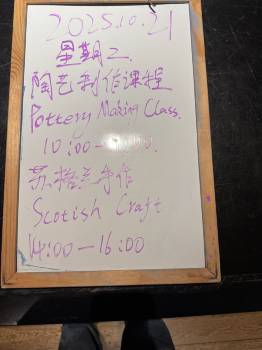 2025.10.21
星期二.
陶艺制作课程
Pottery Making Class.
10:00-
苏格兰手作
Scotish Craft
14:00-16:00